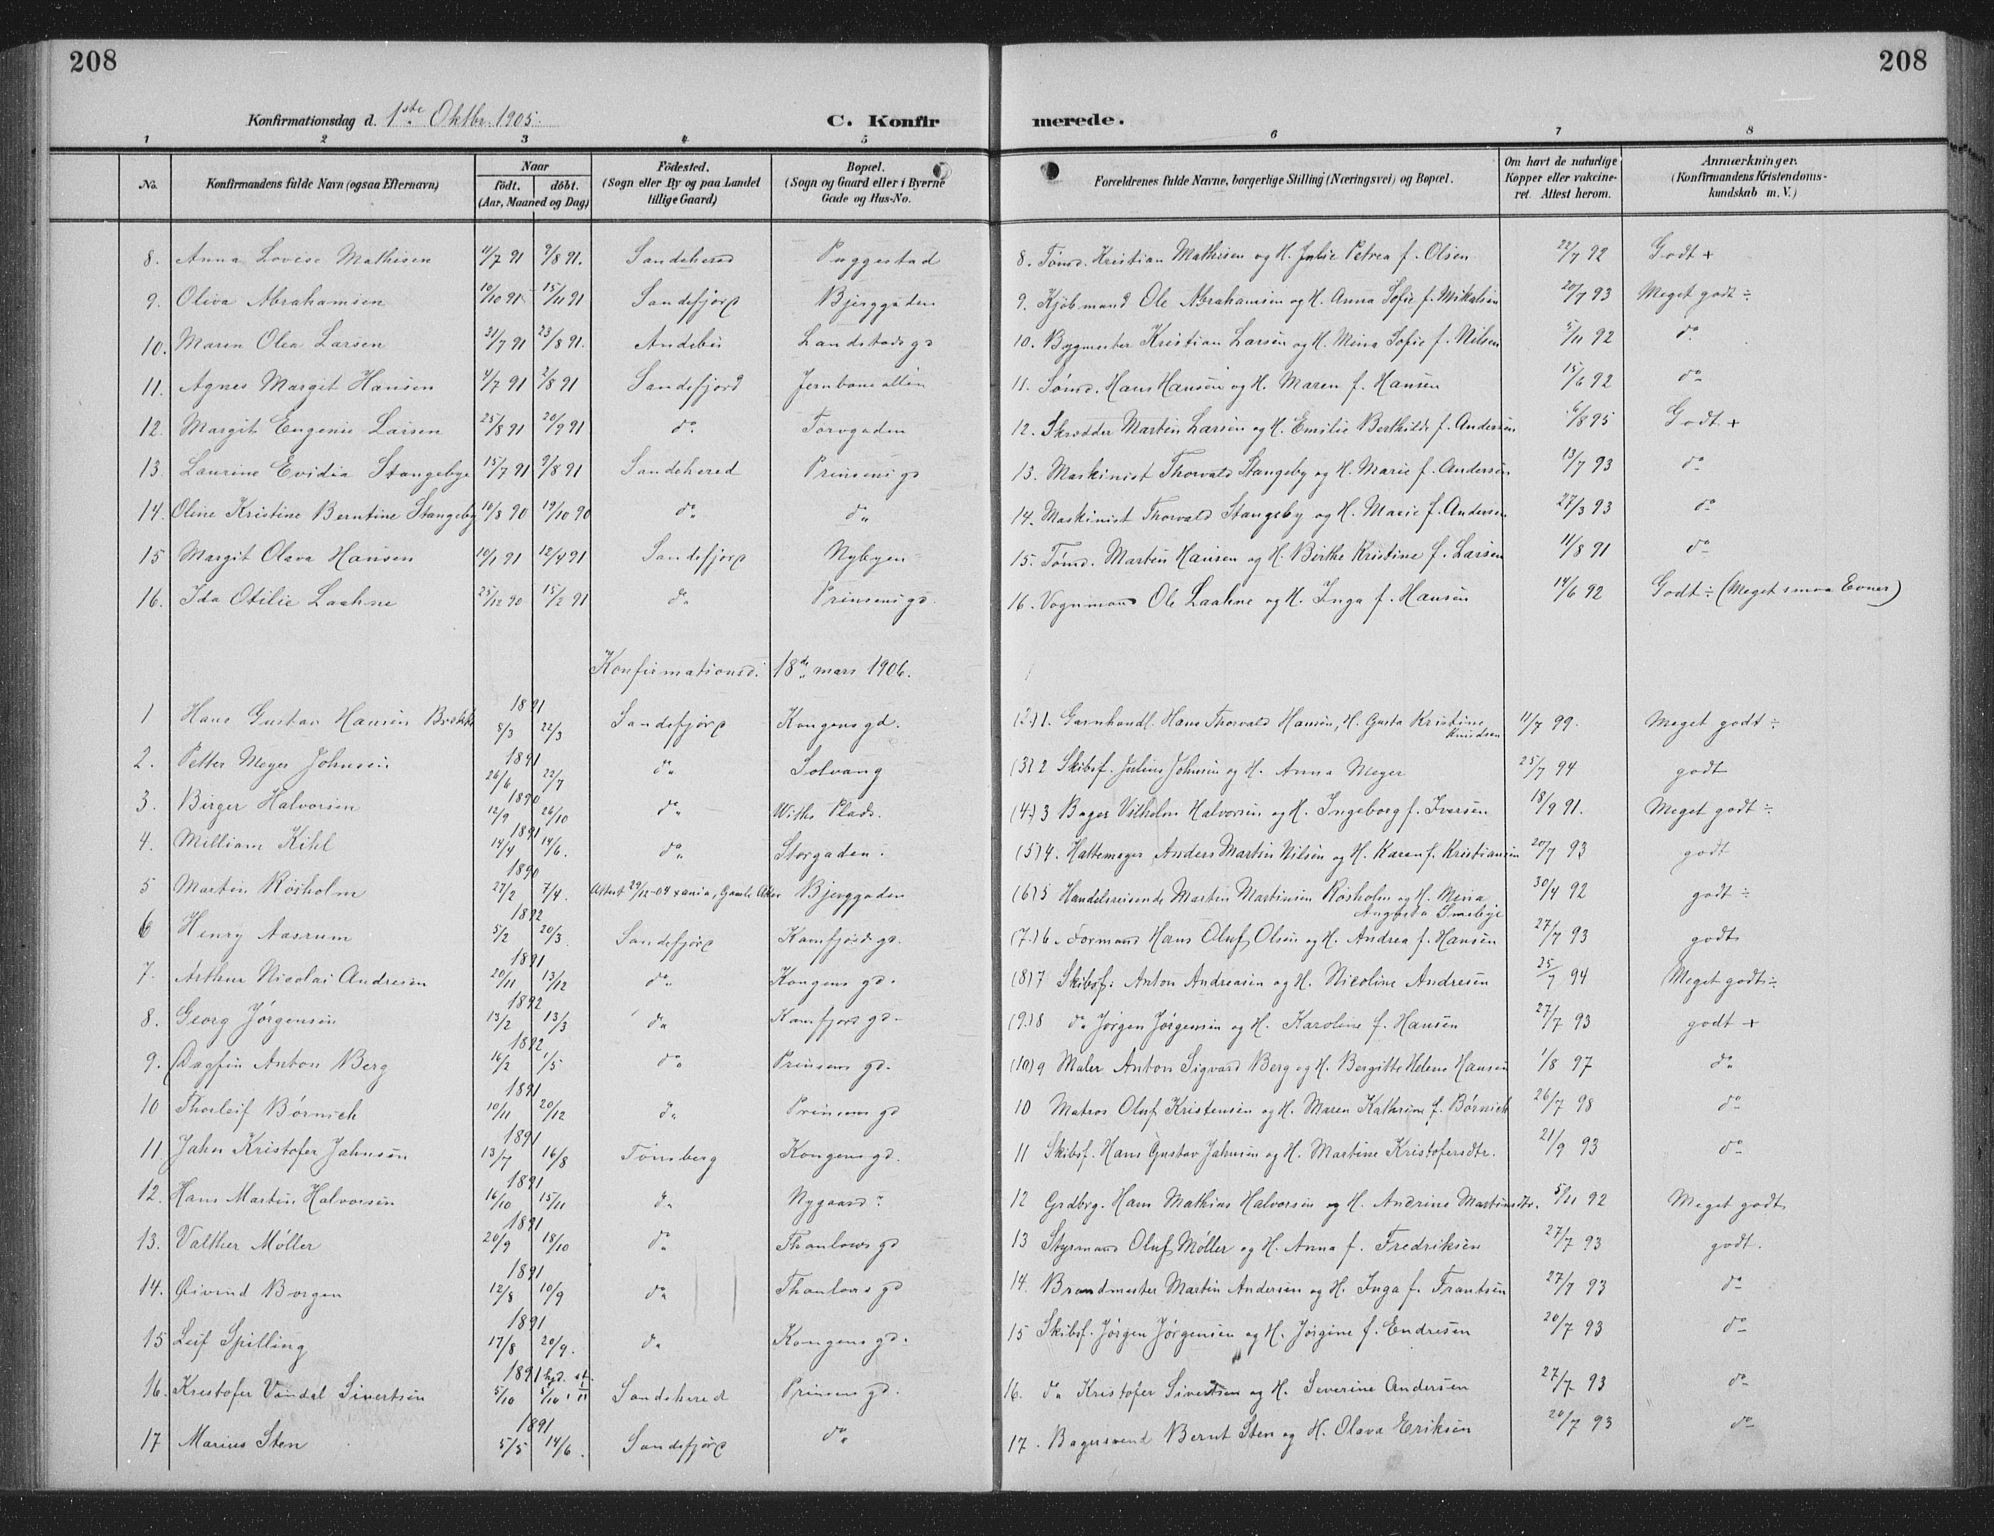 208
208
Konfirmationsdag d. 1ste Oktbr. 1905.
C. Konfirmerede.
1 2 3 4 5 6 7 8
No. Konfirmandens fulde Navn (ogsaa Efternavn) Naar født. døbt. (Aar, Maaned og Dag) Fødested. (Sogn eller By og paa Landet tillige Gaard) Bopæl. (Sogn og Gaard eller i Byerne Gade og Hus-No. Forældrenes fulde Navne, borgerlige Stilling (Næringsvei) og Bopæl. Om havt de naturlige Kopper eller vakcineret. Attest herom. Anmærkninger. (Konfirmandens Kristendomskundskab m. V.)
8. Anna Lovise Mathisen 11/7 91 9/8 91. Sandeherred Puggestad 8. Tømd. Kristian Mathisen og H. Julie Petrea f. Olsen 22/7 92 Godt +
9. Oliva Abrahamsen 10/10 91 15/11 91 Sandefjord Bjerggaden 9. Kjøbmand Ole Abrahamsen og H. Anna Sofie f. Mikalsen 20/7 93 Meget godt ÷
10. Maren Olea Larsen 31/7 91 23/8 91. Andebu Landstads gd 10. Bygmester Kristian Larsen og H. Mina Sofie f. Nilsen 5/11 92 do.
11. Agnes Margit Hansen 4/7 91 2/8 91 Sandefjord Jernbanealléen 11. Tømd. Hans Hansen og H. Maren f. Hansen 15/6 92 do
12. Margit Eugenie Larsen 25/8 91 20/9 91 do. Torvgaden 12. Skrædder Martin Larsen og H. Emilie Berthilde f. Andersen 6/8 95 Godt +
13. Laurine Evidia Stangebye 15/7 91 9/8 91 Sandehered Prinsens gd 13. Maskinist Thorvald Stangeby og H. Marie f. Andersen 13/7 93 do
14. Oline Kristine Berntine Stangeby 10/8 90 19/10 90 do do 14. Maskinist Thorvald Stangeby og H. Marie f. Andersen 27/3 93 do
15 Margit Olava Hansen 10/1 91 12/4 91 Sandefjord Nybyen 15. Tømd. Martin Hansen og H. Birthe Kristine f. Larsen 11/8 91 do
16. Ida Otilie Laahne 25/12 90 15/2 91 do Prinsens gd. 16. Vognmand Ole Laahne og H. Inga f. Hansen 14/6 92 Godt ÷ (Meget smaa Evner)
Konfirmationsd. 18de mars 1906.
1 Hans Gustav Hansen Brekke 1891 8/3 22/3 Sandefjord Kongens gd. (2)1. Garnhandl. Hans Thorvald Hansen, H. Gusta Kristine Knudsen 11/7 99. Meget godt ÷
2. Petter Meyer Johnsen 1891 26/6 22/7 do Solvang (3)2 Skibsf. Julius Johnsen og H. Anna Meyer 25/7 94 godt
3. Birger Halvorsen 1890 12/9 26/10 do Withs Plads. (4)3 Bager Vilhelm Halvorsen og H. Ingeborg f. Iversen 18/9 91. Meget godt ÷
4. Milliam Kihl 1891 14/4 14/6. do Storgaden. (5)4. Hattemager Anders Martin Nilsen og H. Karen f. Kristiansen 20/7 93 godt
5 Martin Røsholm 1890 27/2 7/4. Attest 29/12-04 xania, Gamle Aker Bjerggaden (6)5 Handelsreisende Martin Martinsen Røsholm og H. Mina 30/4 92 godt ÷
6 Henry Aasrum 1892 5/2 20/3. Sandefjord Kamfjords gd. (7.)6. Formand Hans Oluf Olsen og H. Andrea f. Hansen 27/7 93 godt
7. Arthur Nicolai Andresen 1891 20/11 13/12 do Kongens gd. (8)7 Skibsf. Anton Andreasen og H. Nicoline Andresen 25/7 94 Meget godt ÷
8. Georg Jørgensen 1892 13/2 13/3 do Kamfjords gd. (9.)8 do Jørgen Jørgensen og H. Karoline f. Hansen 27/7 93 godt +
9. Dagfin Anton Berg 1892 16/2 1/5 do Prinsens gd. (10)9 Maler Anton Sigvard Berg og H. Bergitte Helene Hansen 1/8 97 do
10 Thorleif Børnich 1891 10/11 20/12 do Prinsens gd 10 Matros Oluf Kristensen og H. Maren Kathrine f. Børnich 26/7 98 do
11 Jahn Kristofer Jahnsen 1891 13/7 16/8 Tønsberg Kongens gd. 11 Skibsf. Hans Gustav Jahnsen og H. Martine Kristofersdtr. 21/9 93 do
12. Hans Martin Halvorsen 1891 16/10 15/11 do Nygaards 12 Grdbrg. Hans Mathias Halvorsen og H. Andrine Martinsdtr. 5/11 92 Meget godt
13. Valther Møller 1891 20/9 18/10 do Thaulows gd 13 Styrmand Oluf Møller og H. Anna f. Fredriksen 27/7 93 godt.
14. Øivind Borgen 1891 12/8 10/9 do Thaulows gd 14. Brandmester Martin Andersen og H. Inga f. Frantsen 27/7 93 do
15 Leif Spilling 1891 17/8 20/9. do Kongens gd. 15 Skibsf. Jørgen Jørgensen og H. Jørgine f. Endresen 20/7 93 do
16. Kristofer Vindal Sivertsen 1891 5/10 5/10 Sandehered Prinsens gd. 16. do Kristofer Sivertsen og H. Severine Andersen 27/7 93 do
17 Marius Sten 1891 5/5 14/6. Sandefjord do 17. Bagersvend Bernt Sten og H. Olava Eriksen 20/7 93 do